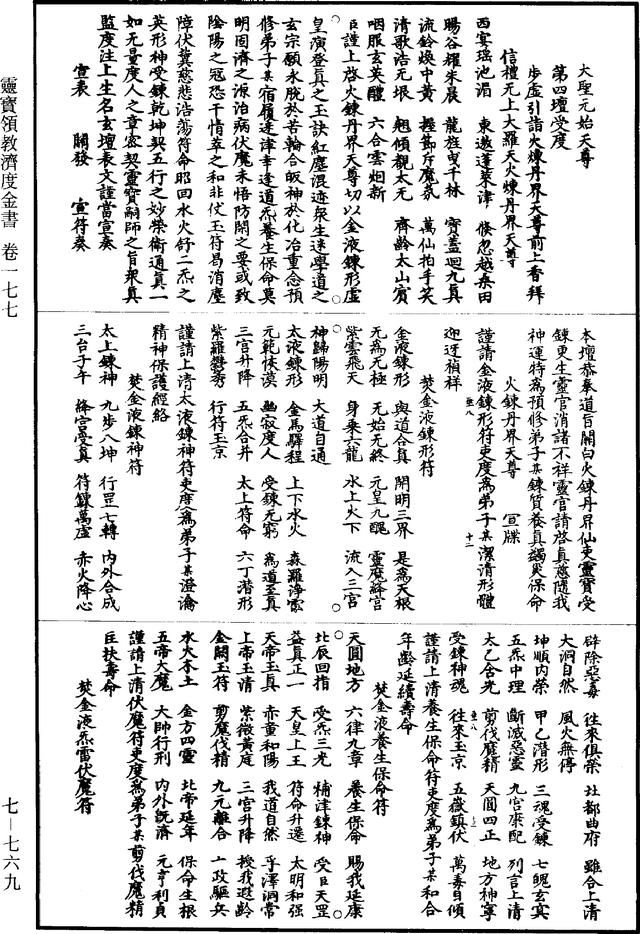 大聖元始天尊
第四壇受度
步虛引詣火煉丹界天尊前上香拜
信禮无上大羅天火煉丹界天尊
西宴瑤池湄 東遨蓬萊津 倐忽越桑田
暘谷耀朱晨 龍旌曳千林 寶蓋迴九真
流鈴煥中黃 握節斥魔氛 萬仙拍手笑
清歌浩无垠 翹傾覲太无 齊齡太山賓
咽服玄英醴 六合雲烟新
臣謹上啓火鍊丹界天尊切以金液鍊形虛
皇演登真之玉訣紅塵混迹衆生迷學道之
玄宗願永脫於苦輪合皈神於化冶重念預
修弟子某宿履逹津幸逢道炁養生保命莫
明固濟之源治病伏魔未悟防閑之要或致
陰陽之冦忽干情莘之和非仗玉符曷消塵
障伏冀慈悲浩蕩符命昭回水火舒二炁之
英形神受鍊乾坤契五行之妙榮衛通真一
如无量度人之章密契靈寶嗣師之旨衆真
監度注上生名玄壇表文謹當宣奏
宣表 關發 宣符奏
本壇恭奉道旨關白火鍊丹界仙吏靈寶受
鍊更生靈官消諸不祥靈官請啓真慈隨我
神運特為預修弟子某鍊質養真蠲災保命
火鍊丹界天尊 宣牒
謹請金液鍊形符吏度為弟子某潔清形體
迎迓禎祥
焚金液鍊形符
金液鍊形 與道合真 開明三界 是為天根
无為无極 无始无終 元皇九魄 靈魔辭官
紫雲飛天 身乘六龍 水上火下 流入三宮
神歸陽明 大道自通
太液鍊形 金馬驛程 上下水火 森羅淨雲
元範恢漠 幽寂度人 受鍊无窮 為道至真
三宮升降 五炁合并 太上符命 六丁潛形
紫羅鬱秀 行符玉京
謹請上清太液鍊神符吏度為弟子某澄瀹
精神保護經絡
焚金液鍊神符
太上鍊神 九步八坤 行罡七轉 內外合成
三台子午 絳宮晏真 符鍊萬虛 赤火降心
辟除惡毒 往來俱榮 北都曲府 雖合上清
大洞自然 風火無停
坤順內榮 甲乙潛形 三魂受鍊 七魄玄賓
五炁中理 斷滅惡靈 九宮康配 列言上清
太乙含光 剪伐魔精 天圓四正 地方神寧
受鍊神魂 往來玉京 五嶽鎮伏 萬毒自傾
謹請上清養生保命符吏度為弟子某和合
年齡延續壽命
焚金液養生保命符
天圓地方 六律九章 養生保命 賜我延康
北辰四指 受炁三光 楠津鍊神 受臣天罡
益真正一 天皇上王 符命升遷 太明和强
天帝玉真 赤童和陽 我道自然 手澤洞常
上帝玉清 紫微黃庭 三宮升降 授我遐齡
金闕玉符 剪魔伐精 九元離合 一政驅兵
水火本土 金方四靈 北帝延年 保命生根
五帝大魔 大帥行刑 內外旣濟 元亨利貞
謹請上清伏魔符吏度為弟子某剪伐魔精
臣扶壽命
焚金液炁雷伏魔符
靈寶領教濟度金書 卷一七七
七－七六九